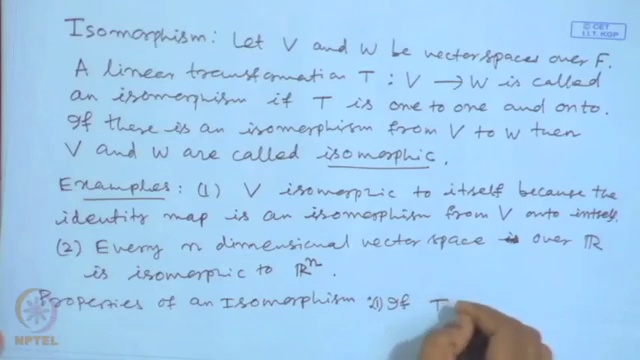 © CET
I.I.T. KGP
Isomorphism: Let V and W be vector spaces over F.
A linear transformation T : V → W is called
an isomorphism if T is one to one and onto.
If there is an isomorphism from V to W then
V and W are called isomorphic.
Examples: (1) V isomorphic to itself because the
identity map is an isomorphism from V onto intself.
(2) Every n dimensional vector space over ℝ
is isomorphic to ℝⁿ.
Properties of an Isomorphism: (1) If T
NPTEL